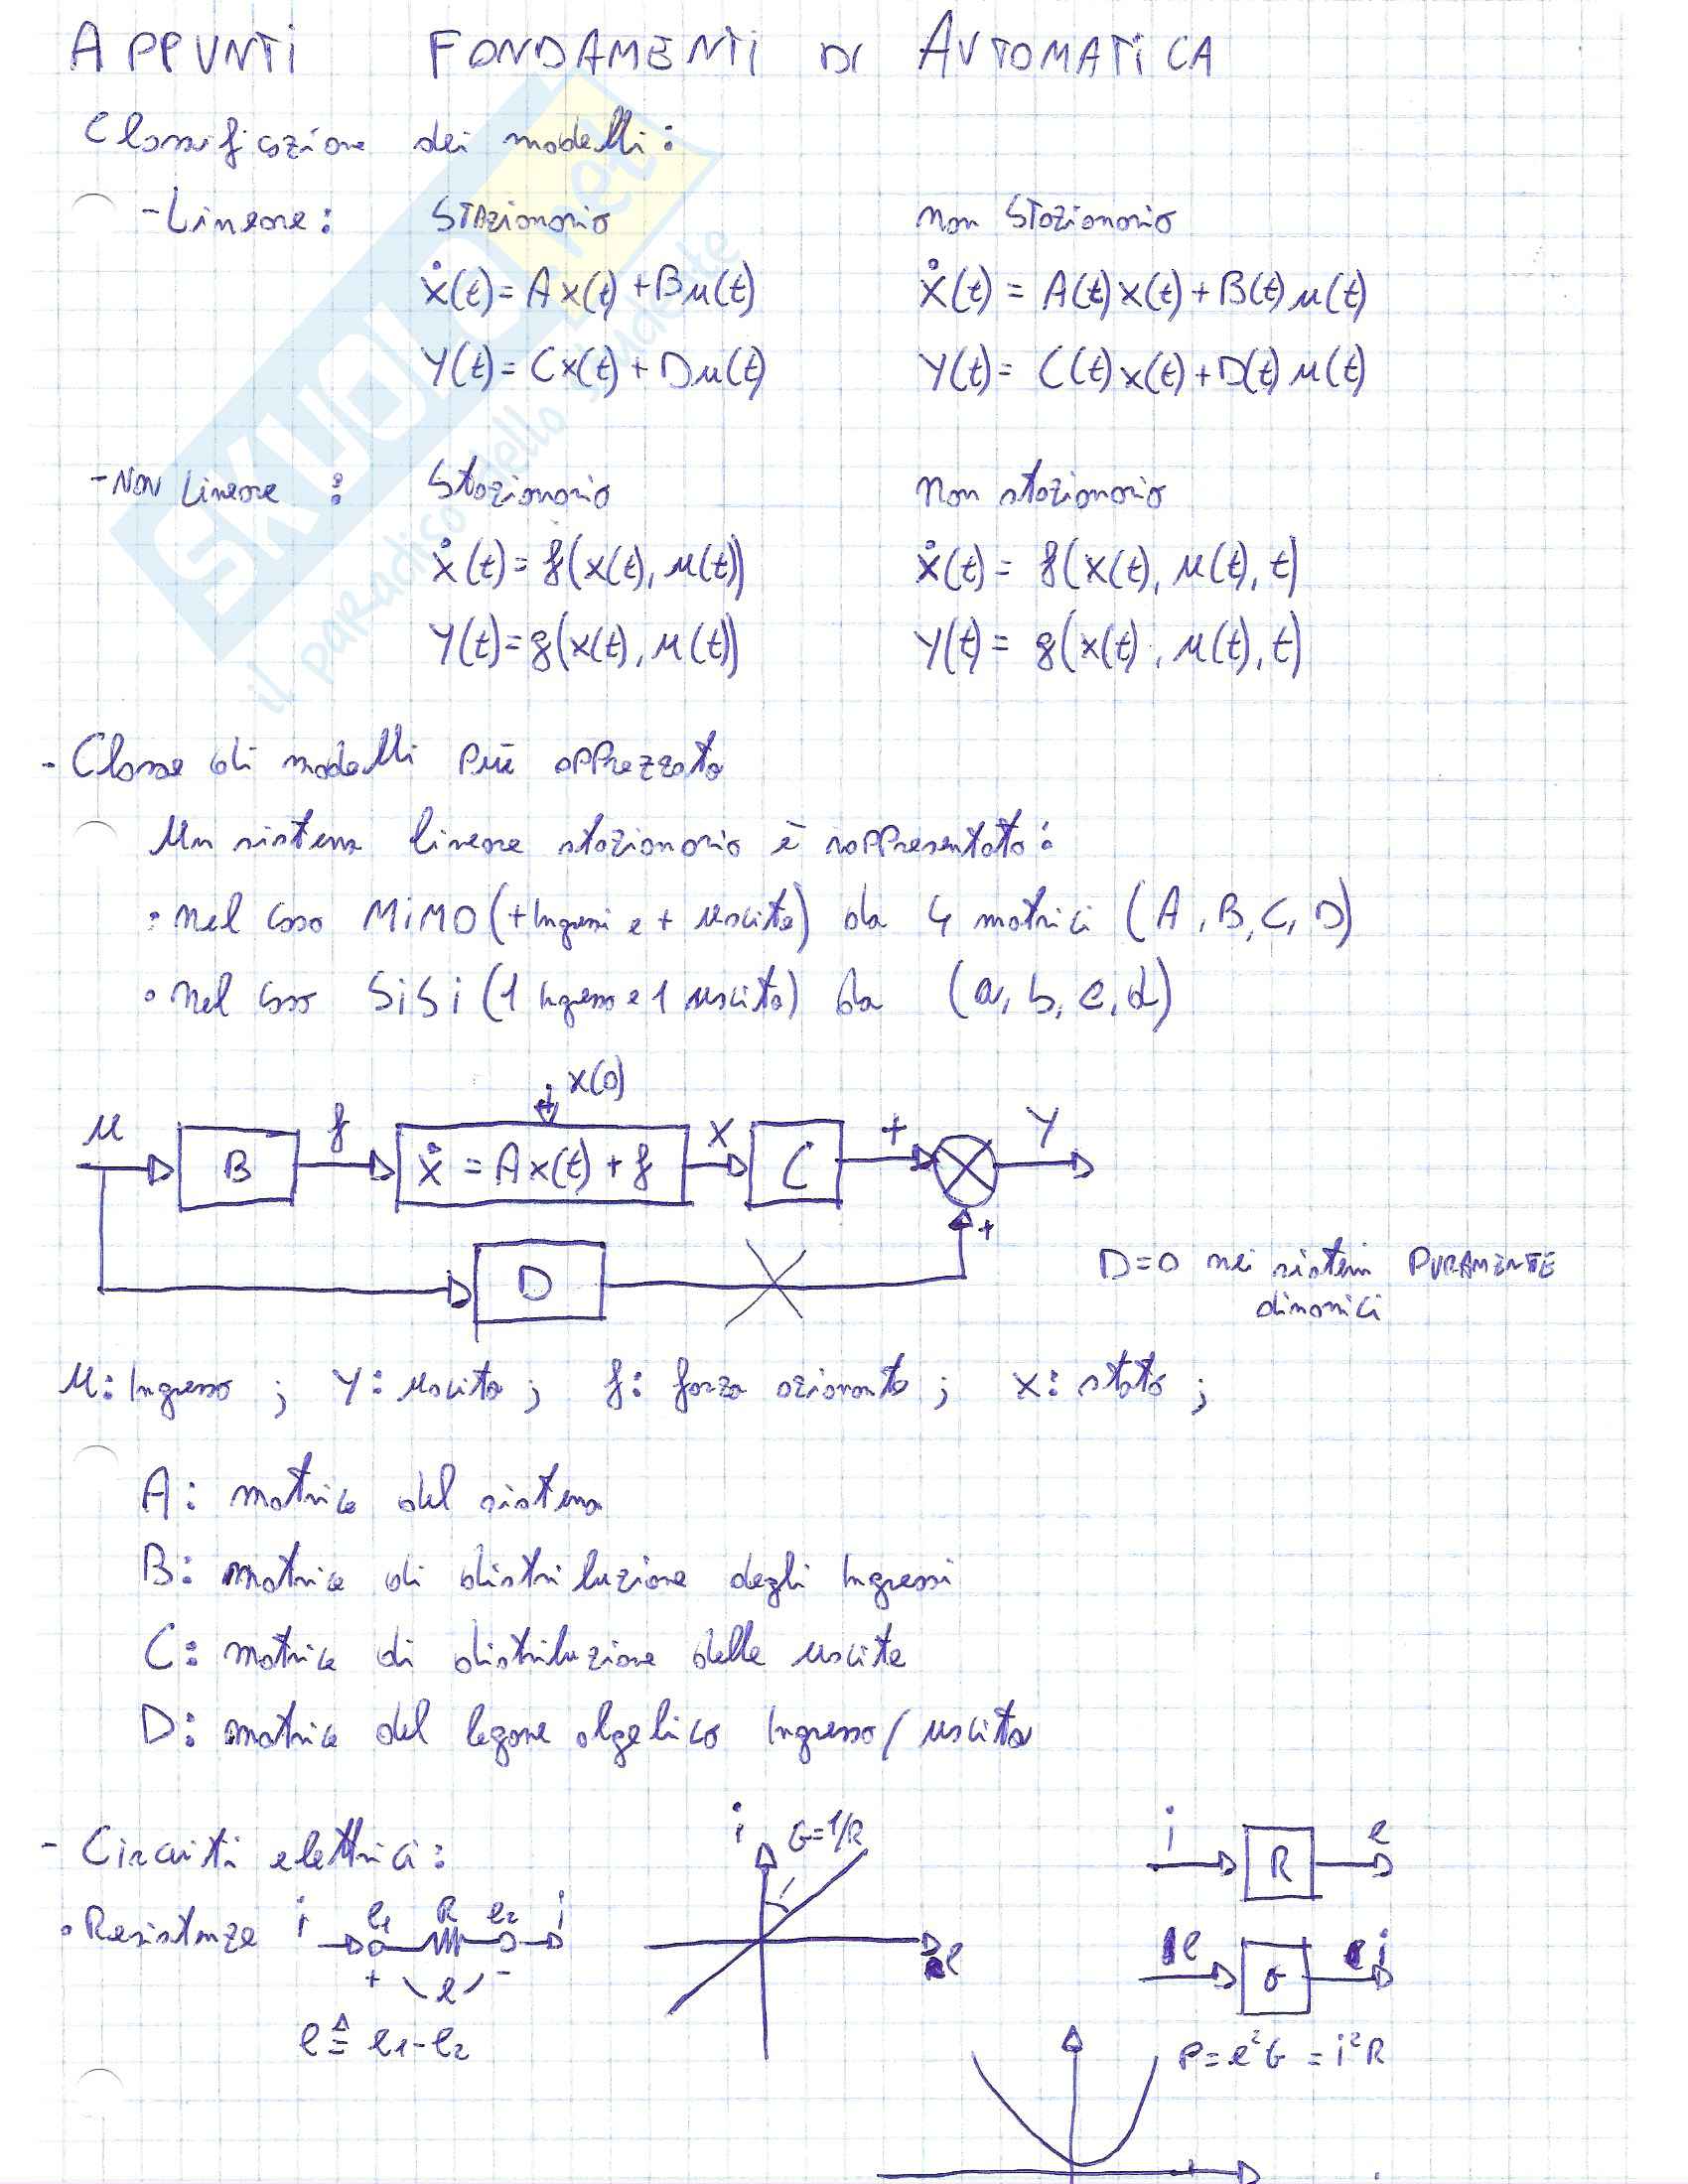 APPUNTI FONDAMENTI DI AUTOMATICA
Classificazione dei modelli:
- Lineare: Stazionario non Stazionario
ẋ(t) = Ax(t) + Bu(t) ẋ(t) = A(t)x(t) + B(t)u(t)
Y(t) = Cx(t) + Du(t) Y(t) = C(t)x(t) + D(t)u(t)
- Non Lineare : Stazionario Non stazionario
ẋ(t) = f(x(t), u(t)) ẋ(t) = f(x(t), u(t), t)
Y(t) = g(x(t), u(t)) Y(t) = g(x(t), u(t), t)
- Classe di modelli più apprezzata
Un sistema lineare stazionario è rappresentato:
• nel caso MIMO (+ Ingressi e + uscite) da 4 matrici (A, B, C, D)
• nel caso SiSi (1 Ingresso e 1 uscita) da (a, b, c, d)
x(0)
u B f ẋ = Ax(t) + f x C + Y
+
D
D=0 nei sistemi PURAMENTE
dinamici
u: Ingresso ; Y: uscita ; f: forza azionante ; x: stato ;
A: matrice del sistema
B: matrice di distribuzione degli Ingressi
C: matrice di distribuzione delle uscite
D: matrice del legame algebrico Ingresso/uscita
- Circuiti elettrici:
i G=1/R i R e
• Resistenze i e1 R e2 i
+ e - e e G i
e ≜ e1-e2
P = e²G = i²R
SKUOLA.net
il paradiso dello studente